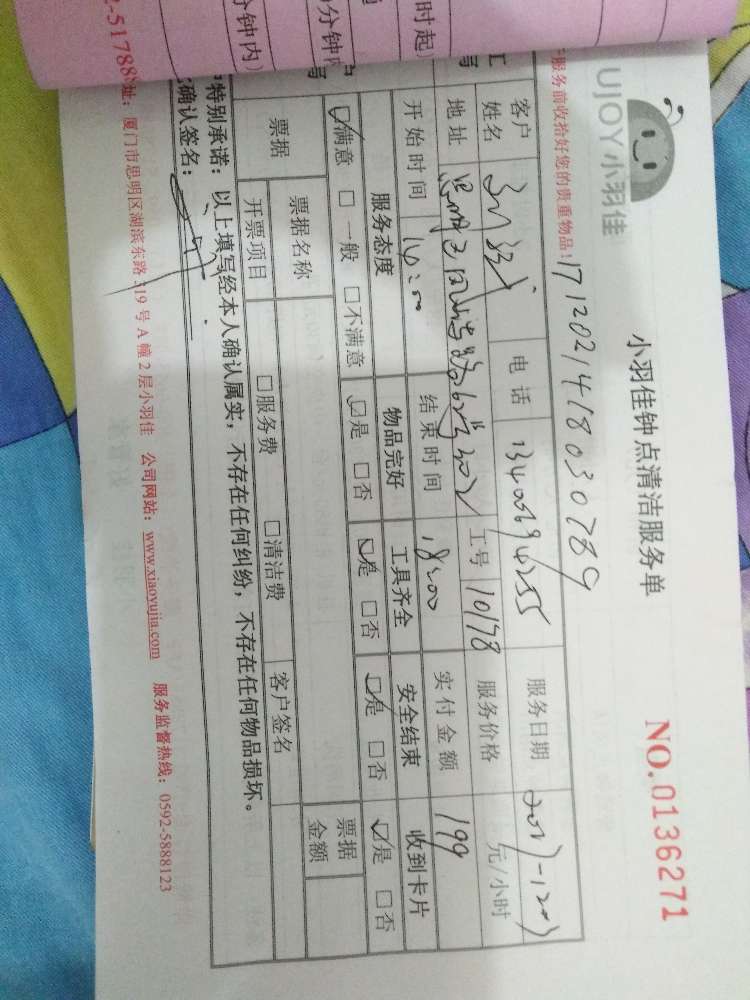 UJOY小羽佳
小羽佳钟点清洁服务单
NO.0136271
服务前收拾好您的贵重物品!
1712021418030789
客户姓名
电话 13400694255
服务日期
地址
工号 10178
服务价格 元/小时
开始时间 14:00
结束时间 18:00
实付金额 199
服务态度 物品完好 工具齐全 安全结束 收到卡片
☑满意 □一般 □不满意 ☑是 □否 ☑是 □否 ☑是 □否 ☑是 □否
票据 票据名称 票据金额
开票项目 □服务费 □清洁费 客户签名
特别承诺:以上填写经本人确认属实,不存在任何纠纷,不存在任何物品损坏。
确认签名:
址:厦门市思明区湖滨东路 319 号 A 幢 2 层小羽佳 公司网站:www.xiaoyujia.com 服务监督热线:0592-5888123
时起)
分钟内)
2-51788